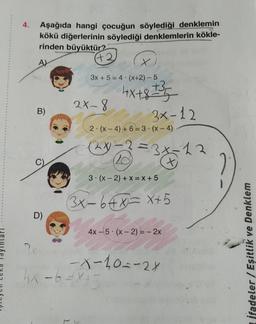 4. Aşağıda hangi çocuğun söylediği denklemin
kökü diğerlerinin söylediği denklemlerin kökle-
rinden büyüktür?
+2
A)
x
3x + 5 = 4 · (x+2) – 5
4x+8
+3
2x-8
3x-12
B)
2 · (x – 4) + 6 = 3 · (x – 4)
2x-2=3x-12
10
x
C)
3 · (x – 2) + x = x + 5
3x-6+x= x+5
D)
4x – 5 · (x – 2) = – 2x
-x-10=-2x
4x-6=x+5
İfadeler / Eşitlik ve Denklem